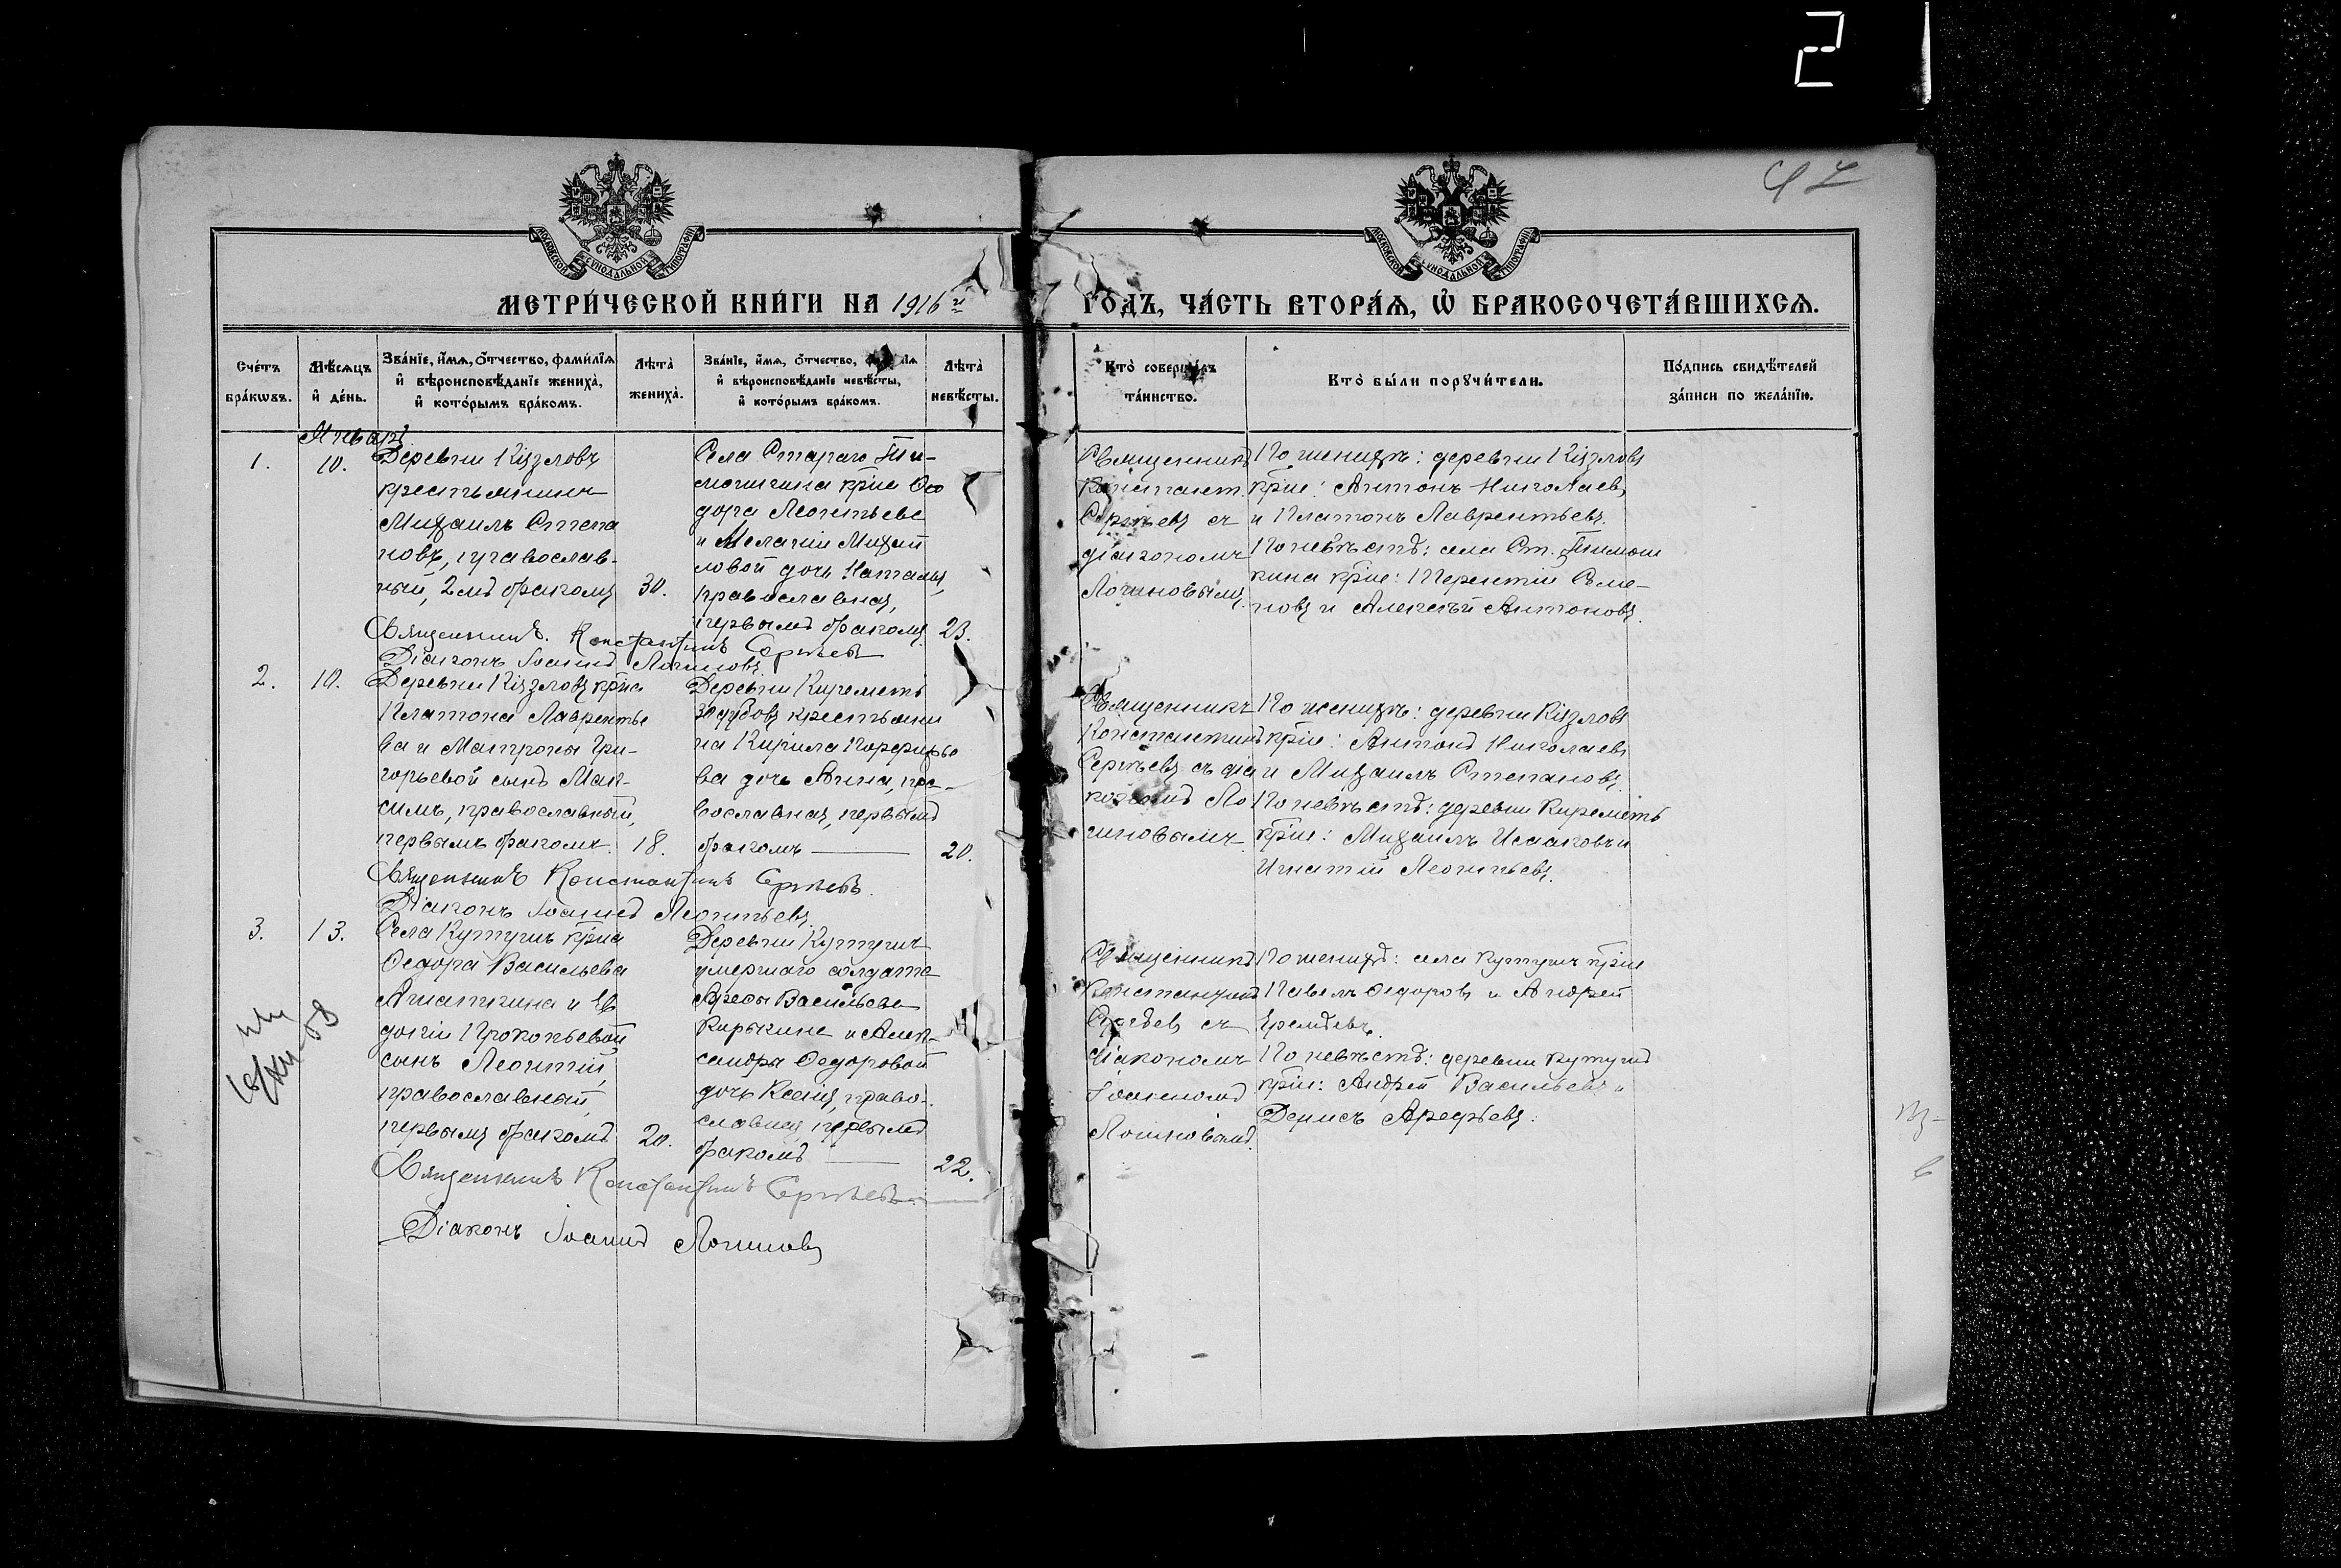 2
47
МОСКОВСКОЙ СѴНОДАЛЬНОЙ ТИПОГРАФІИ
МОСКОВСКОЙ СѴНОДАЛЬНОЙ ТИПОГРАФІИ
МЕТРИ́ЧЕСКОЙ КНИ́ГИ НА 1916 й
ГО́ДЪ, ЧА́СТЬ ВТОРА́Я, Ѡ҆ БРАКОСОЧЕТА́ВШИХСѦ.
Сче́тъ бра́кѡвъ.
Мѣ́сѧцъ и҆ де́нь.
Зва́нїе, и҆́мѧ, ѻ҆́тчество, фами́лїѧ
и҆ вѣроисповѣ́данїе жениха̀,
и҆ кото́рымъ бра́комъ.
Лѣта̀ жениха̀.
Зва́нїе, и҆́мѧ, ѻ҆́тчество,
и҆ вѣроисповѣ́данїе невѣ́сты,
и҆ кото́рымъ бра́комъ.
Лѣта̀ невѣ́сты.
Кто̀ соверша́лъ
та́инство.
Кто̀ бы́ли порꙋчи́тели.
По́дпись свидѣ́телей
за́писи по жела́нїю.
1.
10.
Деревни Кіязловъ
крестьянинъ
Михаилъ Степа
новъ, православ-
ный, 2мъ бракомъ
30.
Села Стараго Ти-
мошкина кр̅на Ѳео
дора Леонтьева
и Меланіи Михай
ловой дочь Наталья,
православная,
первымъ бракомъ
23.
Священникъ
Константъ.
Сергѣевъ съ
діакономъ
Логиновымъ.
По женихѣ: деревни Кіязловъ
кр̅не: Антонъ Николаевъ
и Платонъ Лаврентьевъ.
По невѣстѣ: села Ст. Тимош
кина кр̅не: Терентій Семе-
новъ и Алексѣй Антоновъ.
Священникъ. Константинъ Сергѣевъ
Діаконъ Іоаннъ Логиновъ
2.
10.
Деревни Кіязловъ кр̅на
Платона Лаврентье
ва и Матроны Гри-
горьевой сынъ Мак-
симъ, православный,
первымъ бракомъ.
18.
Деревни Киреметь
крестьяни
на Кирила Порфирье
ва дочь Анна, пра-
вославная, первымъ
бракомъ
20.
Священникъ
Константинъ
Сергѣевъ съ діа
кономъ Ло
гиновымъ.
По женихѣ: деревни Кіязловъ
кр̅не: Антонъ Николаевъ
и Михаилъ Степановъ.
По невѣстѣ: деревни Киреметь
кр̅не: Михаилъ Исааковъ и
Игнатій Леонтьевъ.
Священникъ Константинъ Сергѣевъ.
Діаконъ Іоаннъ Леонтьевъ.
3.
13.
Села Кутушъ кр̅на
Ѳедора Васильева
и Ев
докіи Прокопьевой
сынъ Леонтій,
православный,
первымъ бракомъ
20.
Деревни Кутушъ
умершаго солдата
Арефы Васильева
Кирькина и Алек-
сандры Ѳедоровой
дочь Ксенія, право-
славная, первымъ
бракомъ
22.
Священникъ
Константинъ
Сергѣевъ съ
діакономъ
Іоанномъ
Логиновымъ.
По женихѣ: села Кутушъ кр̅не
Павелъ Ѳедоровъ и Андрей
Еремѣевъ.
По невѣстѣ: деревни Кутушъ
кр̅не: Андрей Васильевъ и
Денисъ Арефьевъ.
Священникъ Константинъ Сергѣевъ
Діаконъ Іоаннъ Логиновъ